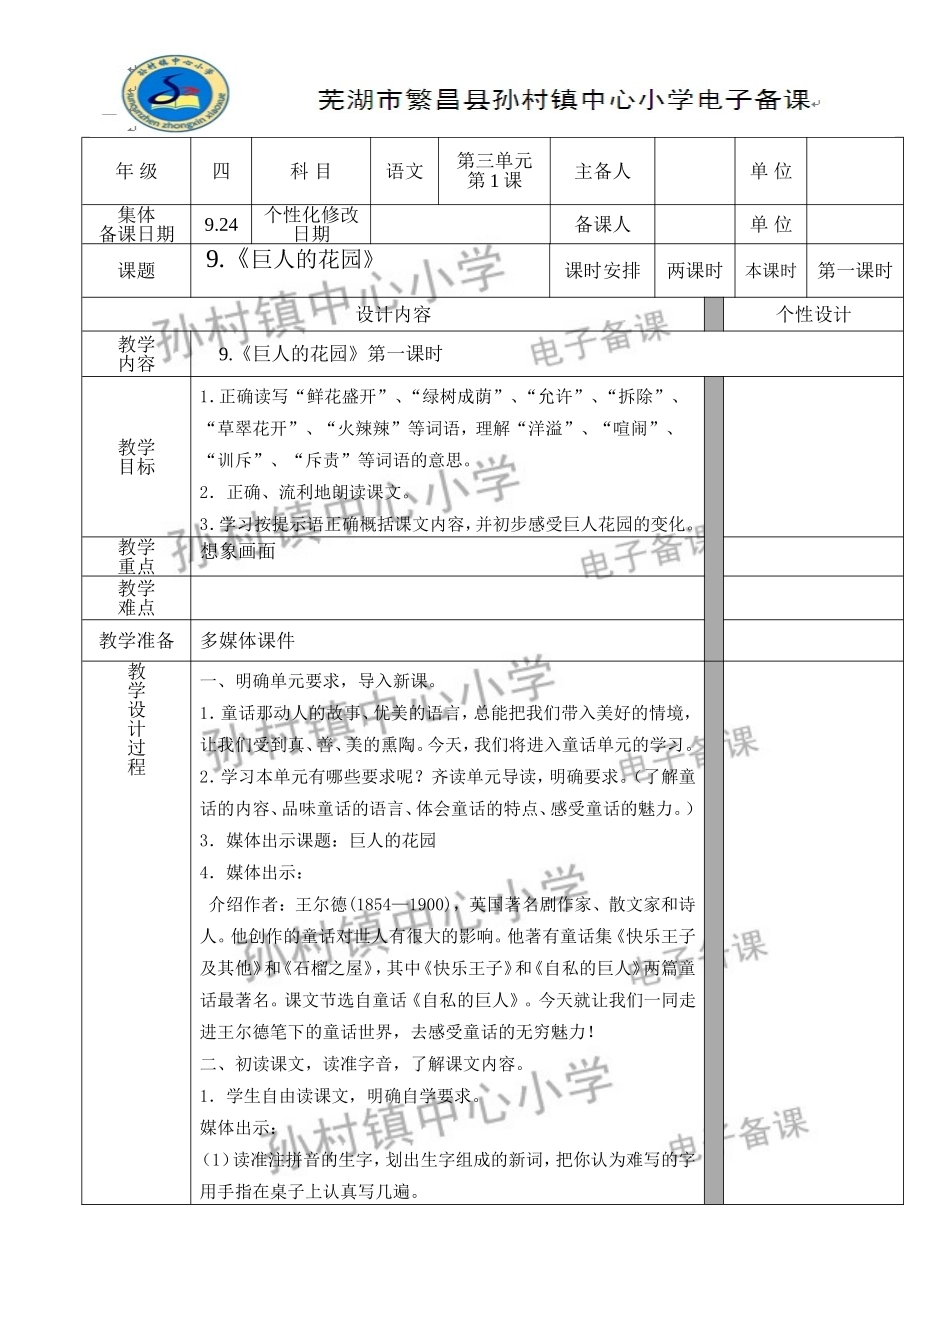 孙村镇中心小学
sunginzhen zhongxin xiaoxue
芜湖市繁昌县孙村镇中心小学电子备课
年 级 四 科 目 语文 第三单元 第 1 课 主备人 单 位
集体 备课日期 9.24 个性化修改 日期 备课人 单 位
课题 9.《巨人的花园》 课时安排 两课时 本课时 第一课时
设计内容 个性设计
教学 内容 9.《巨人的花园》第一课时
教学 目标
1. 正确读写“鲜花盛开”、“绿树成荫”、“允许”、“拆除”、
“草翠花开”、“火辣辣”等词语，理解“洋溢”、“喧闹”、
“训斥”、“斥责”等词语的意思。
2．正确、流利地朗读课文。
3. 学习按提示语正确概括课文内容，并初步感受巨人花园的变化。
教学 重点 想象画面
教学 难点
教学准备 多媒体课件
教学设计过程
一、明确单元要求，导入新课。
1. 童话那动人的故事、优美的语言，总能把我们带入美好的情境，
让我们受到真、善、美的熏陶。今天，我们将进入童话单元的学习。
2．学习本单元有哪些要求呢？齐读单元导读，明确要求。（了解童
话的内容、品味童话的语言、体会童话的特点、感受童话的魅力。）
3．媒体出示课题：巨人的花园
4．媒体出示：
介绍作者：王尔德(1854—1900)，英国著名剧作家、散文家和诗
人。他创作的童话对世人有很大的影响。他著有童话集《快乐王子
及其他》和《石榴之屋》，其中《快乐王子》和《自私的巨人》两篇童
话最著名。课文节选自童话《自私的巨人》。今天就让我们一同走
进王尔德笔下的童话世界，去感受童话的无穷魅力！
二、初读课文，读准字音，了解课文内容。
1．学生自由读课文，明确自学要求。
媒体出示：
（1）读准注拼音的生字，划出生字组成的新词，把你认为难写的字
用手指在桌子上认真写几遍。
孙村镇中心小学
电子备课
孙村镇中心小学
电子备课
孙村镇中心小学
电子备课
孙村镇中心小学
电子备课
孙村镇中心小学
电子备课